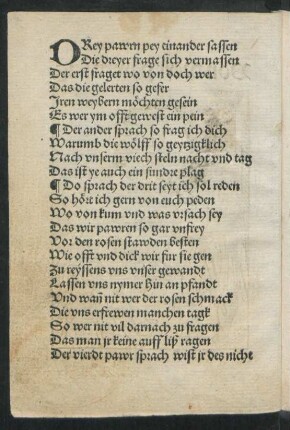 DRey pawrn pey einander sassen
Die dreyer frage sich vermassen
Der erst fraget wo von doch wer
Das die gelerten so gefer
Jren weybern möchten gesein
Es wer ym offt gewest ein pein
¶ Der ander sprach so frag ich dich
Warumb die wölff so geytzigklich
Nach vnserm viech steln nacht vnd tag
Das ist ye auch ein sundre plag
¶ Do sprach der drit seyt ich sol reden
So hört ich gern von euch peden
Wo von kum vnd was vrsach sey
Das wir pawren so gar vnfrey
Vor den rosen stawden besten
Wie offt vnd dick wir fur sie gen
Zu reyssens vns vnser gewandt
Lassen vns nymer hin an pfandt
Vnd wañ nit wer der rosen schmack
Die vns erfrewen manchen tagk
So wer nit vil darnach zu fragen
Das man jr keine auff ließ ragen
Der vierdt pawr sprach wist jr des nicht